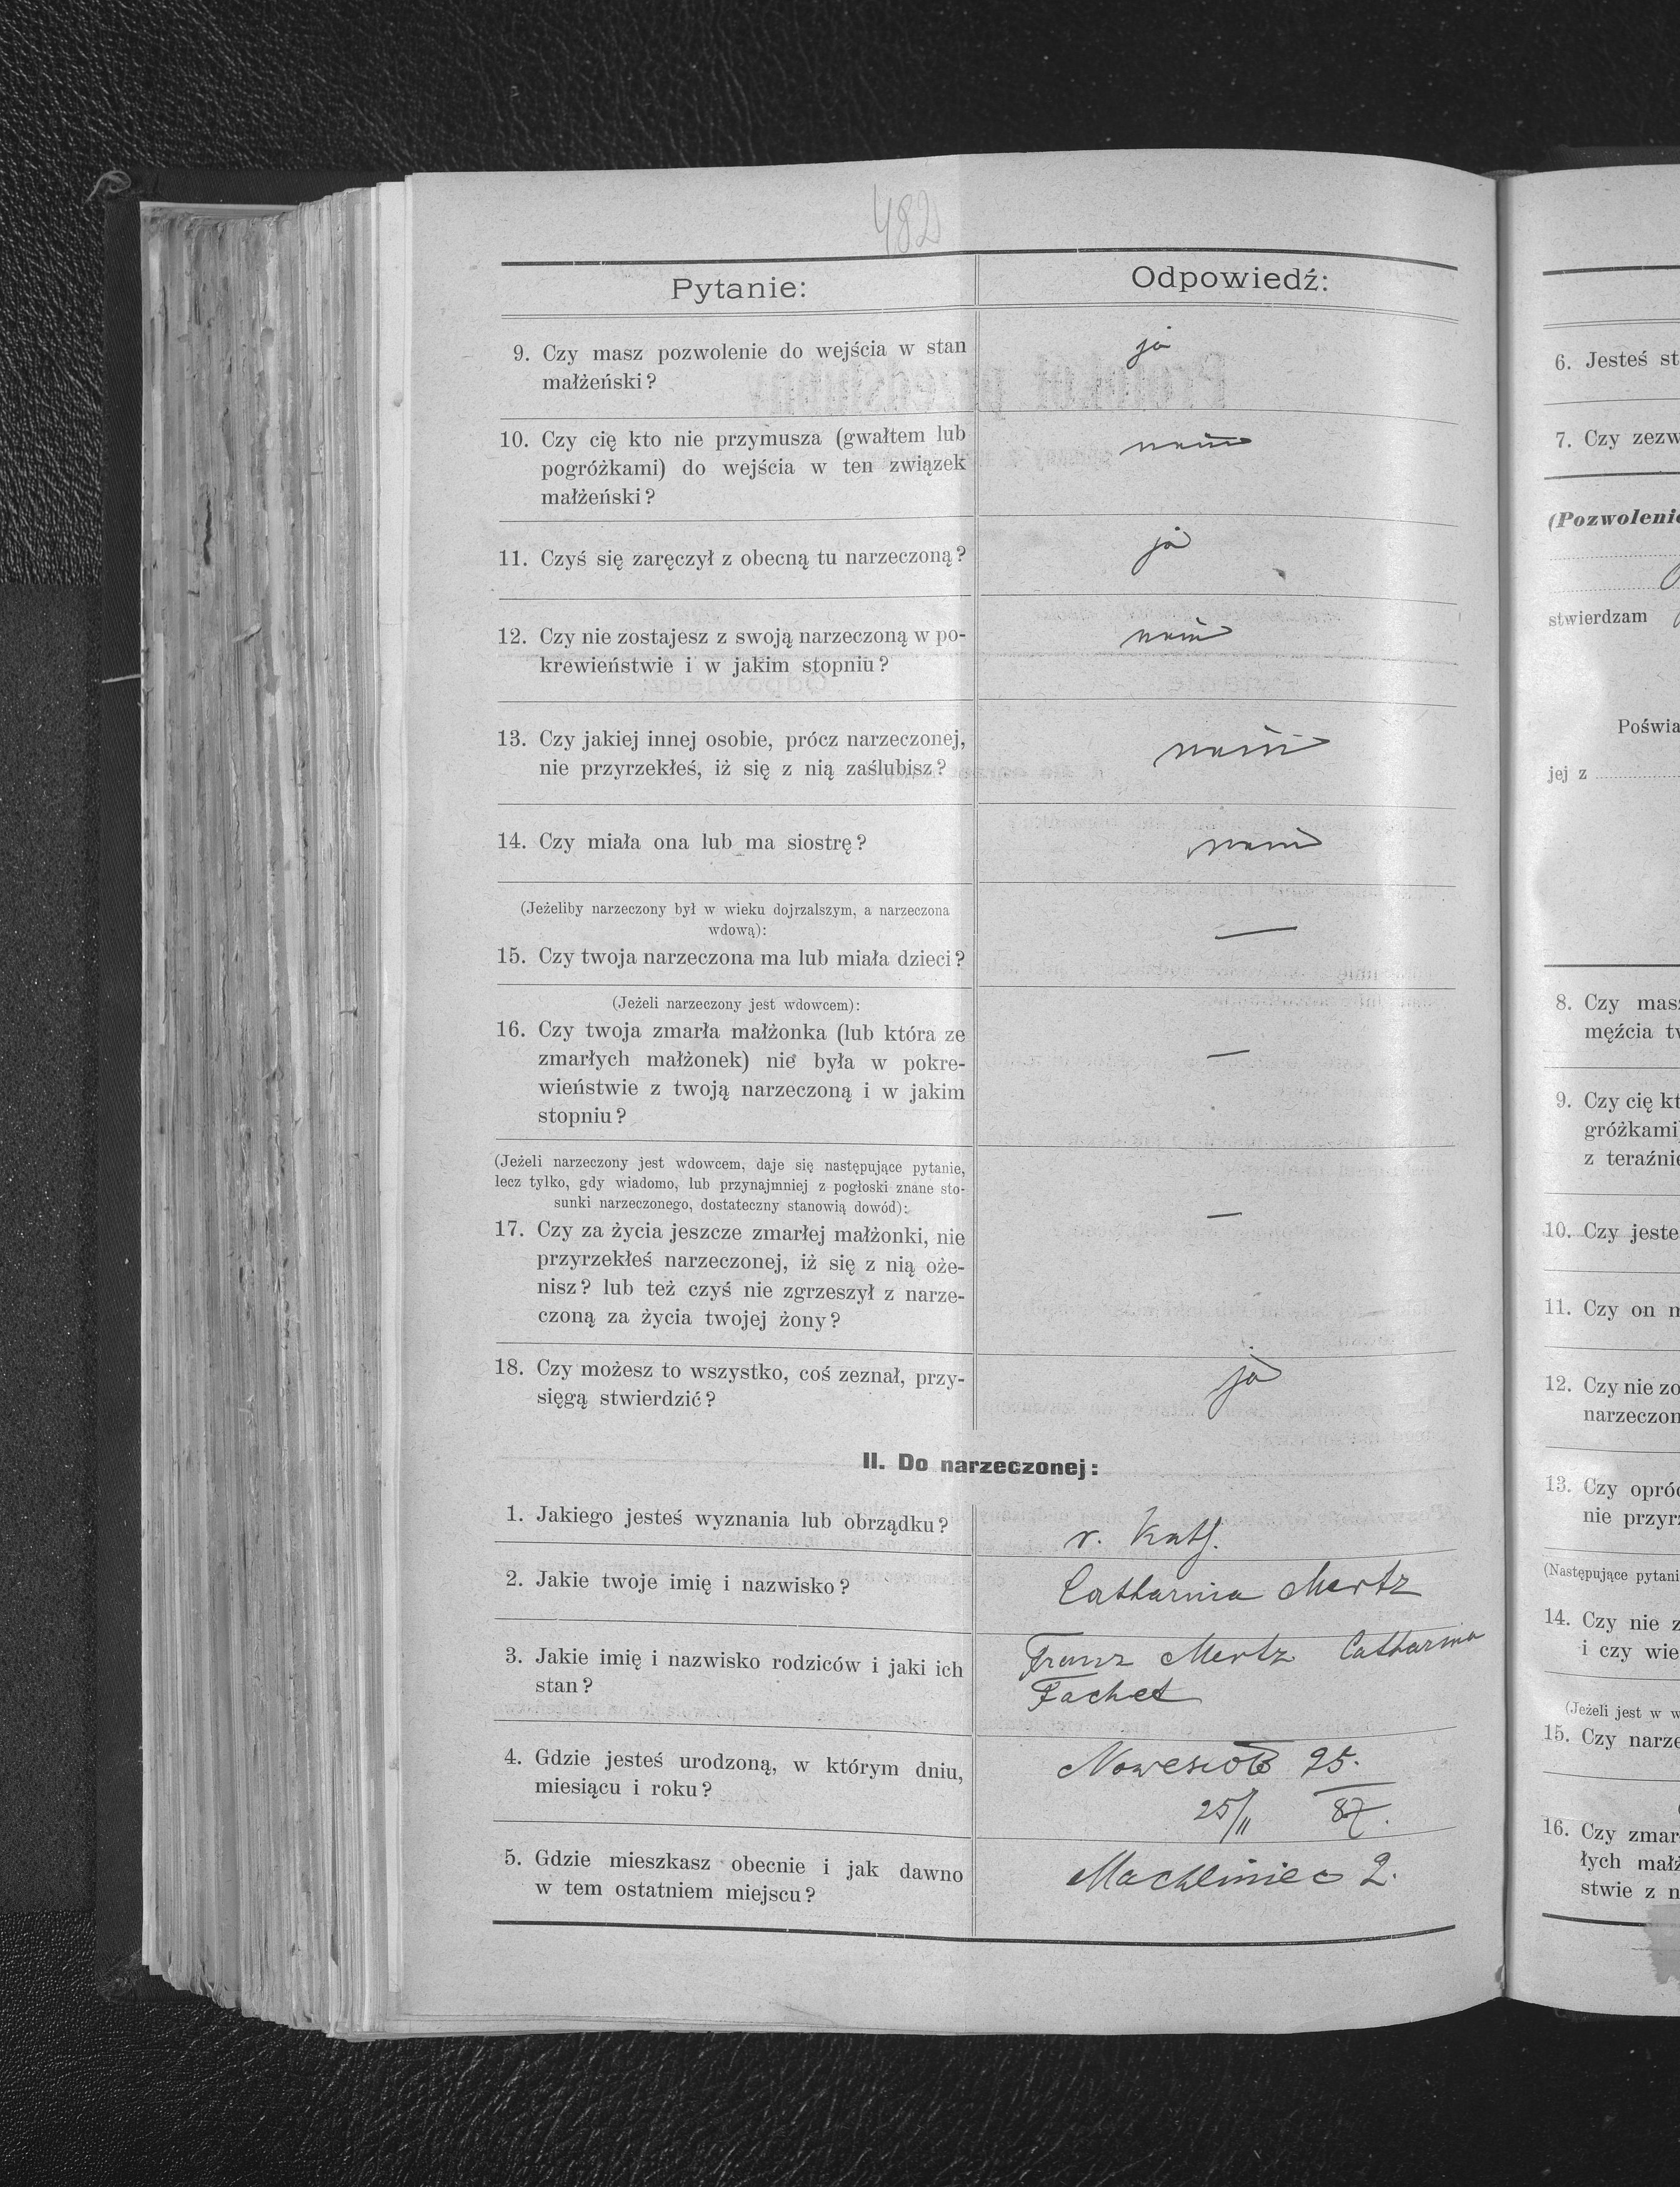 482
Pytanie:
Odpowiedź:
9. Czy masz pozwolenie do wejścia w stan
małżeński?
ja
10. Czy cię kto nie przymusza (gwałtem lub
pogróżkami) do wejścia w ten związek
małżeński?
nein
11. Czyś się zaręczył z obecną tu narzeczoną?
ja
12. Czy nie zostajesz z swoją narzeczoną w po-
krewieństwie i w jakim stopniu?
nein
13. Czy jakiej innej osobie, prócz narzeczonej,
nie przyrzekłeś, iż się z nią zaślubisz?
nein
14. Czy miała ona lub ma siostrę?
nein
(Jeżeliby narzeczony był w wieku dojrzalszym, a narzeczona
wdową):
15. Czy twoja narzeczona ma lub miała dzieci?
—
(Jeżeli narzeczony jest wdowcem):
16. Czy twoja zmarła małżonka (lub która ze
zmarłych małżonek) nie była w pokre-
wieństwie z twoją narzeczoną i w jakim
stopniu?
—
(Jeżeli narzeczony jest wdowcem, daje się następujące pytanie,
lecz tylko, gdy wiadomo, lub przynajmniej z pogłoski znane sto-
sunki narzeczonego, dostateczny stanowią dowód):
17. Czy za życia jeszcze zmarłej małżonki, nie
przyrzekłeś narzeczonej, iż się z nią oże-
nisz? lub też czyś nie zgrzeszył z narze-
czoną za życia twojej żony?
—
18. Czy możesz to wszystko, coś zeznał, przy-
sięgą stwierdzić?
ja
II. Do narzeczonej:
1. Jakiego jesteś wyznania lub obrządku?
r. Kath.
2. Jakie twoje imię i nazwisko?
Catharina Mertz
3. Jakie imię i nazwisko rodziców i jaki ich
stan?
Franz Mertz Catharina
Fachet
4. Gdzie jesteś urodzoną, w którym dniu,
miesiącu i roku?
25.
25/11 87.
5. Gdzie mieszkasz obecnie i jak dawno
w tem ostatniem miejscu?
Machliniec 2.
6. Jesteś st
7. Czy zezw
(Pozwolenie
stwierdzam
Poświa
jej z
8. Czy masz
męźcia tw
9. Czy cię kt
gróżkami)
z teraźnie
10. Czy jeste
11. Czy on m
12. Czy nie zo
narzeczon
13. Czy opróc
nie przyrz
(Następujące pytani
14. Czy nie z
i czy wie
(Jeżeli jest w w
15. Czy narze
16. Czy zmar
łych małż
stwie z n